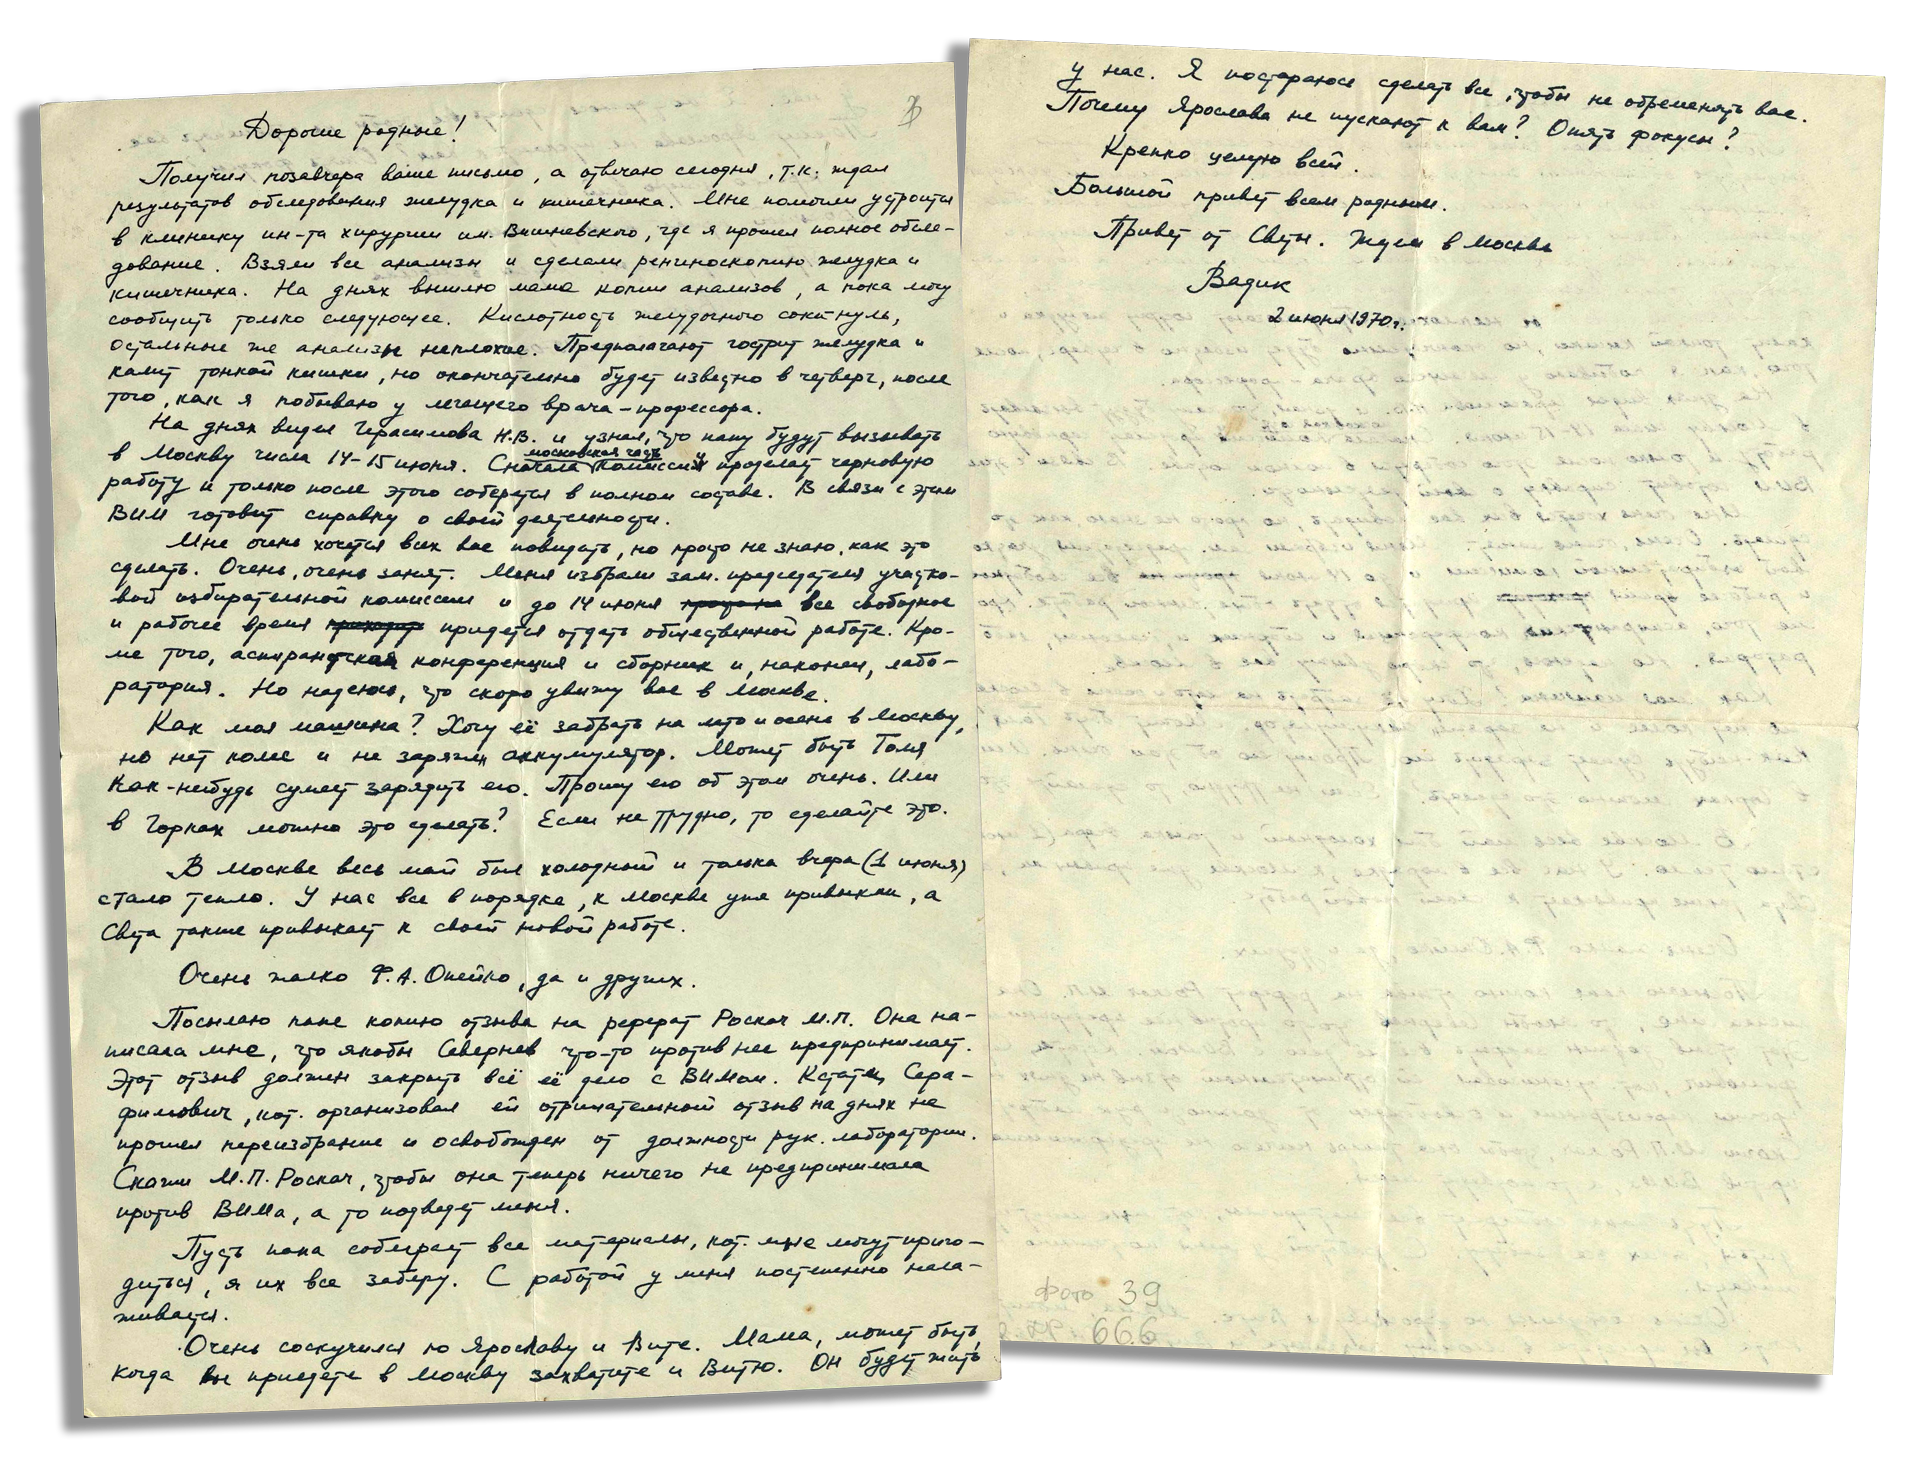 Дорогие родные!
Получил позавчера ваше письмо, а отвечаю сегодня, т.к. ждал
результатов обследования желудка и кишечника. Мне помогли устроится
в клинику ин-та хирургии им. Вишневского, где я прошел полное обсле-
дование. Взяли все анализы и сделали ренгиноскопию желудка и
кишечника. На днях вышлю мама копии анализов, а пока могу
сообщить только следующее. Кислотность желудочного сока нуль,
остальные же анализы неплохие. Предполагают гострит желудка и
калит тонкой кишки, но окончательно будет известно в четверг, после
того, как я побываю у лечащего врача-профессора.
На днях видел Герасимова Н.В. и узнал, что папу будут вызывать
московская часть
в Москву числа 14-15 июня. Сначала комиссии проделает черновую
работу и только после этого соберется в полном составе. В связи с этим
ВИМ готовит справку о своей деятельности.
Мне очень хочется всех вас повидать, но просто не знаю, как это
сделать. Очень, очень занят. Меня избрали зам. председателя участко-
вой избирательной комиссии и до 14 июня все свободное
и рабочее время придется отдать общественной работе. Кро-
ме того, аспирантская конференция и сборник и, наконец, лабо-
ратория. Но надеюсь, что скоро увижу вас в Москве.
Как моя машина? Хочу её забрать на лето и осень в Москву,
но нет колес и не заряжен аккумулятор. Может быть Толя
как-нибудь сумеет зарядить его. Прошу его об этом очень. Или
в Горках можно это сделать? Если не трудно, то сделайте это.
В Москве весь май был холодный и только вчера (1 июня)
стало тепло. У нас все в порядке, к Москве уже привыкли, а
Света также привыкает к своей новой работе.
Очень жалко Ф.А. Опейко, да и других.
Посылаю папе копию отзыва на реферат Роскач М.П. Она на-
писала мне, что якобы Севернев что-то против нее предпринимает.
Этот отзыв должен закрыть всё её дело с ВИМом. Кстати, Сера-
фимович, кот. организовал ей отрицательной отзыв на днях не
прошел переизбрание и освобожден от должности рук. лаборатории.
Скажи М.П. Роскач, чтобы она теперь ничего не предпринимала
против ВИМа, а то подведет меня.
Пусть папа собирает все материалы, кот. мне могут приго-
диться, я их все заберу. С работой у меня постепенно нала-
живается.
Очень соскучился по Ярославу и Вите. Мама, может быть,
когда вы приедете в Москву захватите и Витю. Он будет жить
у нас. Я постараюсь сделать все, чтобы не обременять вас.
Почему Ярослава не пускают к вам? Опять фокусы?
Крепко целую всей.
Большой привет всем родным.
Привет от Светы. Ждем в Москве
Вадик
2 июня 1970г.
фото 39